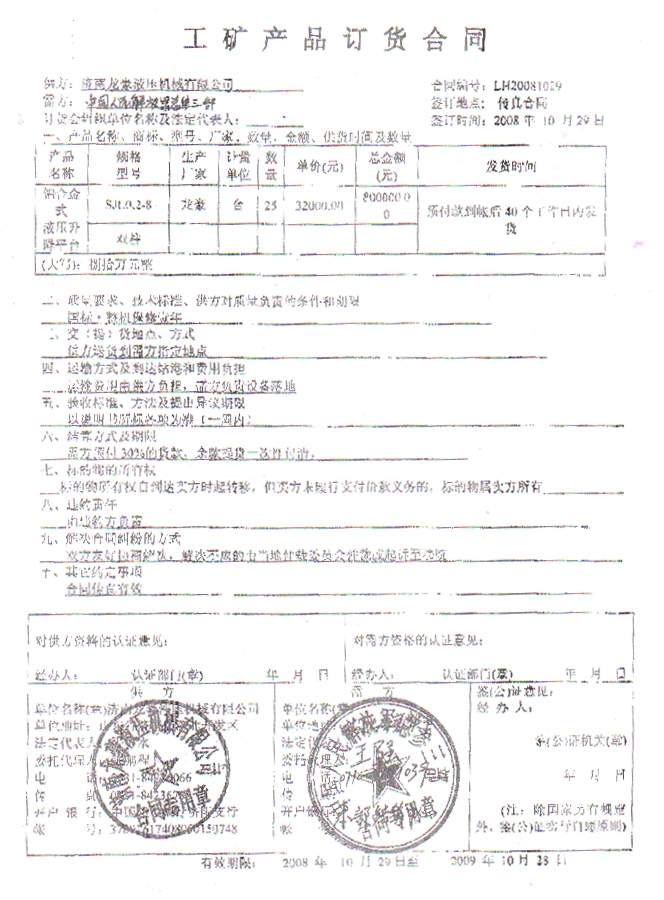 工矿产品订货合同
供方：济南龙豪液压机械有限公司
合同编号：LH20081029
需方：中国人民解放军总参三部
签订地点：传真合同
订货会组织单位名称及法定代表人：
签订时间：2008 年 10 月 29 日
一、产品名称、商标、型号、厂家、数量、金额、供货时间及数量
产品名称 规格型号 生产厂家 计量单位 数量 单价(元) 总金额(元) 发货时间
铝合金式液压升降平台 SJL0.2-8 双柱 龙豪 台 25 32000.00 800000.00 预付款到帐后 40 个工作日内发货
(大写)：捌拾万元整
二、质量要求、技术标准、供方对质量负责的条件和期限
国标·整机保修壹年
三、交（提）货地点、方式
供方送货到需方指定地点
四、运输方式及到达站港和费用负担
运输费用由供方负担，需方负责设备落地
五、验收标准、方法及提出异议期限
以说明书所标各项为准（一周内）
六、结算方式及期限
需方预付 30%的货款，余款提货一次性付清。
七、标的物的所有权
标的物所有权自到达买方时起转移，但买方未履行支付价款义务的，标的物属卖方所有
八、违约责任
由违约方负责
九、解决合同纠纷的方式
双方友好协商解决，解决不成的由当地仲裁委员会仲裁或起诉至
十、其它约定事项
合同传真有效
对供方资格的认证意见：
对需方资格的认证意见：
经办人： 认证部门(章) 年 月 日
经办人： 认证部门(章) 年 月 日
供 方
需 方
鉴(公)证意见：
经 办 人：
单位名称(章)济南龙豪液压机械有限公司
单位名称(章)
单位地址：
单位地址
法定代表人
法定代
鉴(公)证机关(章)
委托代理人
委托代理人：王
电 话
电 话：
年 月 日
传 真
传
开户银行：中国
支行
开户银
(注：除国家另有规定
帐 号：
帐
外，鉴(公)证实行自愿原则)
合同专用章
有效期限： 2008 年 10 月 29 日至 2009 年 10 月 28 日